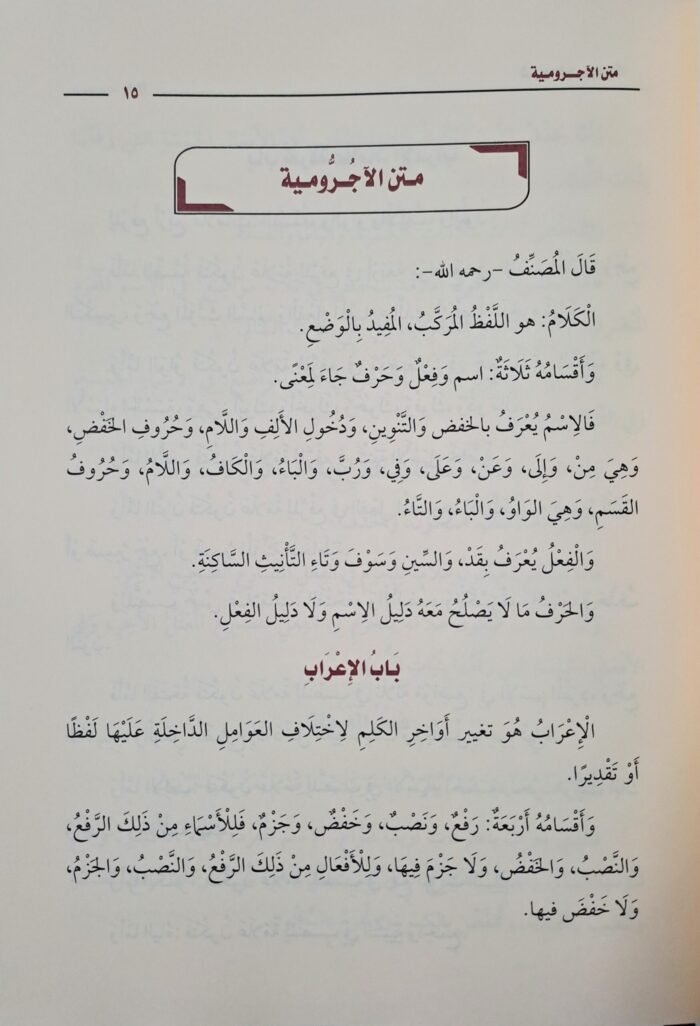 متن الآجـروميـة
١٥
متن الآجُرُّوميـة
قَالَ المُصَنِّفُ -رحمه الله-:
الْكَلَامُ: هو اللَّفْظُ المُرَكَّبُ، المُفِيدُ بِالْوَضْعِ.
وَأَقْسَامُهُ ثَلَاثَةٌ: اسم وَفِعْلٌ وَحَرْفٌ جَاءَ لِمَعْنًى.
فَالِاسْمُ يُعْرَفُ بالخفض وَالتَّنْوِينِ، وَدُخُولِ الأَلِفِ وَاللَّامِ، وَحُرُوفِ الخَفْضِ،
وَهِيَ مِنْ، وَإِلَى، وَعَنْ، وَعَلَى، وَفِي، وَرُبَّ، وَالْبَاءُ، وَالْكَافُ، وَاللَّامُ، وَحُرُوفُ
القَسَمِ، وَهِيَ الوَاوُ، وَالْبَاءُ، وَالتَّاءُ.
وَالْفِعْلُ يُعْرَفُ بِقَدْ، وَالسِّينِ وَسَوْفَ وَتَاءِ التَّأْنِيثِ السَّاكِنَةِ.
وَالحَرْفُ مَا لَا يَصْلُحُ مَعَهُ دَلِيلُ الِاسْمِ وَلَا دَلِيلُ الفِعْلِ.
بَابُ الإِعْرَابِ
الْإِعْرَابُ هُوَ تغيير أَوَاخِرِ الكَلِمِ لِاخْتِلَافِ العَوَامِلِ الدَّاخِلَةِ عَلَيْهَا لَفْظًا
أَوْ تَقْدِيرًا.
وَأَقْسَامُهُ أَرْبَعَةٌ: رَفْعٌ، وَنَصْبٌ، وَخَفْضٌ، وَجَزْمٌ، فَلِلْأَسْمَاءِ مِنْ ذَلِكَ الرَّفْعُ،
وَالنَّصْبُ، وَالخَفْضُ، وَلَا جَزْمَ فِيهَا، وَلِلْأَفْعَالِ مِنْ ذَلِكَ الرَّفْعُ، وَالنَّصْبُ، وَالجَزْمُ،
وَلَا خَفْضَ فيها.